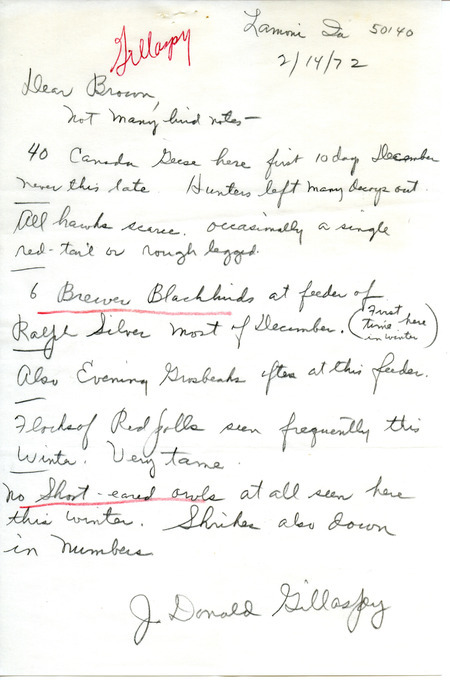 Gillaspy
Lamoni Ia 50140
2/14/72
Dear Brown,
Not many bird notes—
40 Canada Geese here first 10 day December
never this late. Hunters left many decoys out.
All hawks scarce. occasionally a single
red-tail or rough legged.
6 Brewer Blackbirds at feeder of
Ralph Silver most of December. (First time here in winter)
Also Evening Grosbeaks often at this feeder.
Flocks of Redpolls seen frequently this
Winter. Very tame.
No Short-eared owls at all seen here
this winter. Shrikes also down
in Numbers
J. Donald Gillaspy